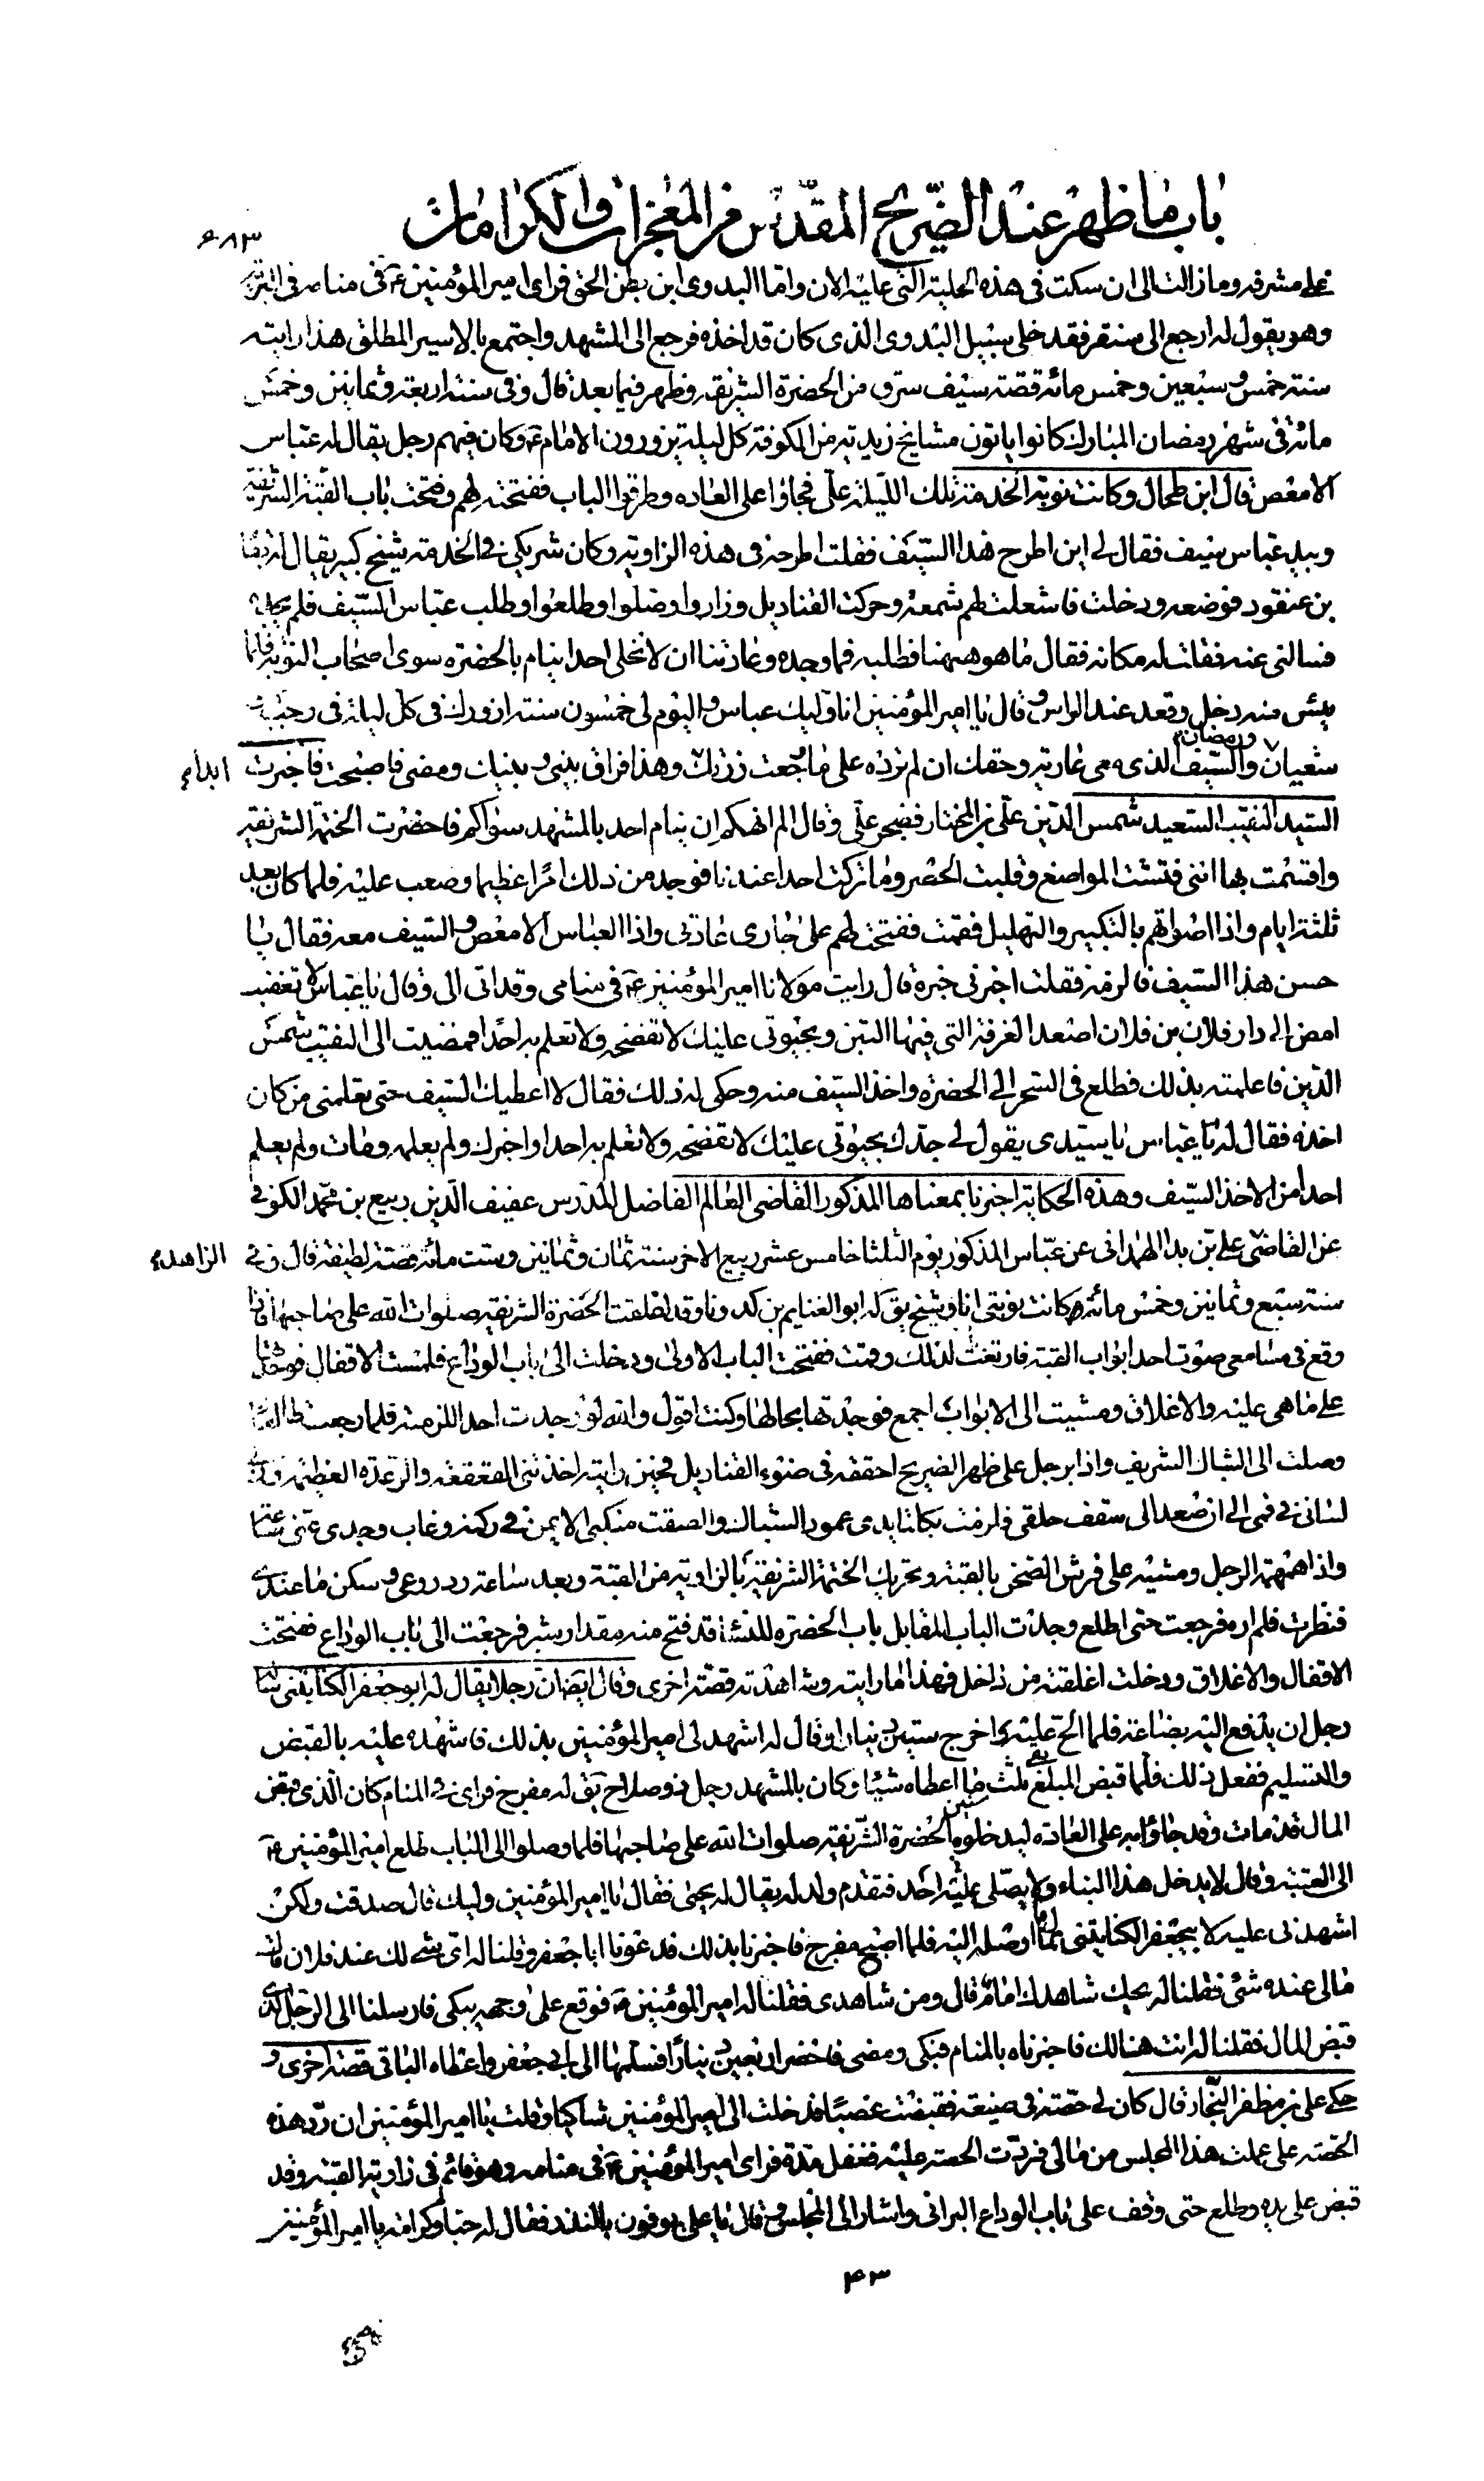 باب ما ظهر عند الضريح المقدس من المعجزات والكرامات
٦٨٣
على مشرفه وما زالت الى ان سكت في هذه الحلية التي عليه الان واما البدوي ابن بطن الحق فراى امير المؤمنين ع في منامه في
وهو يقول له ارجع الى سنقر فقد خلى سبيل البدوي الذي كان قد اخذه فرجع الى المشهد واجتمع بالاسير المطلق هذا رايته
سنة خمس وسبعين وخمس مائة قصة سيف سرق من الحضرة الشريفة وظهر فيما بعد قال وفي سنة اربعة وثمانين وخمس
مائة في شهر رمضان المبارك كانوا ياتون مشايخ زيدية من الكوفة كل ليلة يزورون الامام ع وكان فيهم رجل يقال له عباس
الامعص قال ابن طحال وكانت نوبة الخدمة تلك الليلة علي فجاؤا على العاده وطرقوا الباب ففتحته لهم وفتحت باب القبة الشريفة
وبيد عباس سيف فقال لي اين اطرح هذا السيف فقلت اطرحه في هذه الزاوية وكان شريكي في الخدمة شيخ كبير يقال له بقا
بن عنقود فوضعه ودخلت فاشعلت لهم شمعة وحركت القناديل وزاروا وصلوا وطلعوا وطلب عباس السيف فلم يجده
فسالني عنه فقلت له مكانه فقال ما هو ههنا فطلبه فما وجده وعادتنا ان لا نخلي احدا ينام بالحضرة سوى اصحاب النوبة فلما
يئس منه دخل وقعد عند الراس وقال يا امير المؤمنين انا وليك عباس واليوم لي خمسون سنة ازورك في كل ليلة في رجب
ورمضان
شعبان والسيف الذي معي عارية وحقك ان لم ترده علي ما رجعت زرتك وهذا فراق بيني وبينك ومضى فاصبحت فاخبرت
ابداء
السيد النقيب السعيد شمس الدين علي بن المختار فضجر علي وقال الم انهكم ان ينام احد بالمشهد سواكم فاحضرت الختمة الشريفة
واقسمت بها انني فتشت المواضع وقلبت الحصر وما تركت احدا عندنا فوجد من ذلك امرا عظيما وصعب عليه فلما كان بعد
ثلثة ايام واذا اصواتهم بالتكبير والتهليل فقمت ففتحت لهم على جاري عادتي واذا العباس الامعص والسيف معه فقال يا
حسن هذا السيف فالزمه فقلت اخبرني خبره قال رايت مولانا امير المؤمنين ع في منامي وقد اتى الي وقال يا عباس لا تغضب
امض الى دار فلان بن فلان اصعد الغرفة التي فيها التبن وبحيوتي عليك لا تفضحه ولا تعلم به احدا فمضيت الى النقيب شمس
الدين فاعلمته بذلك فطلع في السحر الى الحضرة واخذ السيف منه وحكى له ذلك فقال لا اعطيك السيف حتى تعلمني من كان
اخذه فقال له يا عباس يا سيدي يقول لي جدك بحيوتي عليك لا تفضحه ولا تعلم به احدا واخبرك ولم يعلمه ومات ولم يعلم
احدا من الاخذ السيف وهذه الحكاية اخبرنا بمعناها المذكور القاضي العالم الفاضل المدرس عفيف الدين ربيع بن محمد الكوفي
عن القاضي علي بن بدا الهمداني عن عباس المذكور يوم الثلثا خامس عشر ربيع الاخر سنة ثمان وثمانين وست مائة قصة لطيفة قال وفي
الزاهد
سنة سبع وثمانين وخمس مائة كانت نوبتي انا وشيخ يق له ابو الغنايم بن كدونا وقد اغلقت الحضرة الشريفة صلوات الله على صاحبها فاذا
وقع في مسامعي صوت احد ابواب القبة فارتعت لذلك وقمت ففتحت الباب الاولى ودخلت الى باب الوداع فلمست الاقفال فوجدتها
على ما هي عليه والاغلاق ومشيت الى الابواب اجمع فوجدتها بحالها وكنت اقول والله لو وجدت احدا للزمته فلما رجعت طالعا
وصلت الى الشباك الشريف واذا برجل على ظهر الضريح احققه في ضوء القناديل فحين رايته اخذتني القعقعة والرعدة العظيمة وربا
لساني في فمي الى ان صعد الى سقف حلقي فلزمت بكلتا يدي عمود الشباك والصقت منكبي الايمن في ركنه وغاب وجدي عني ساعة
واذا همهمة الرجل ومشيه على فرش الصخر بالقبة وتحريك الختمة الشريفة بالزاوية من القبة وبعد ساعة رد روعي وسكن ما عندي
فنظرت فلم اره فرجعت حتى اطلع وجدت الباب المقابل باب الحضرة للنساء قد فتح منه مقدار شبر فرجعت الى باب الوداع ففتحت
الاقفال والاغلاق ودخلت اغلقته من داخل فهذا ما رايته وشاهدته قصة اخرى وقال ايضا ان رجلا يقال له ابو جعفر الكناتيني سال
رجل ان يدفع اليه بضاعة فلما الح عليه اخرج ستين دينارا وقال له اشهد لي امير المؤمنين بذلك فاشهده عليه بالقبض
والتسليم ففعل ذلك فلما قبض المبلغ بقي ثلث سنين ما اعطاه شيئا وكان بالمشهد رجل ذو صلاح يق له مفرج فراى في المنام كان الذي قبض
المال قد مات وقد جاؤا به على العادة ليدخلوه الحضرة الشريفة صلوات الله على صاحبها فلما وصلوا الى الباب طلع امير المؤمنين ع
الى العتبة وقال لا يدخل هذا البناء ولا يصلي عليه احد فتقدم ولد له يقال له يحيى فقال يا امير المؤمنين وليك قال صدقت ولكن
اشهدني عليه لابي جعفر الكناتيني بمال ما اوصله اليه فلما اصبح مفرج فاخبرنا بذلك فدعونا ابا جعفر وقلنا له اي شيء لك عند فلان قال
ما لي عنده شيء فقلنا له ويحك شاهدك امام قال ومن شاهدي فقلنا له امير المؤمنين ع فوقع على وجهه يبكي فارسلنا الى الرجل الذي
قبض المال فقلنا له انت هنالك فاخبرناه بالمنام فبكى ومضى فاحضر اربعين دينارا فسلمها الى ابي جعفر واعطاه الباقي قصة اخرى و
حكى علي بن مظفر النجار قال كان لي حصة في ضيعة فقبضت غصبا فدخلت الى امير المؤمنين شاكيا وقلت يا امير المؤمنين ان رد هذه
الحصة علي عملت هذا المجلس من مالي فردت الحصة عليه فغفل مدة فراى امير المؤمنين ع في منامه وهو قائم في زاوية القبة وقد
قبض على يده وطلع حتى وقف على باب الوداع البراني واشار الى المجلس وقال يا علي يوفون بالنذر فقال له حبا وكرامة يا امير المؤمنين
٤٣